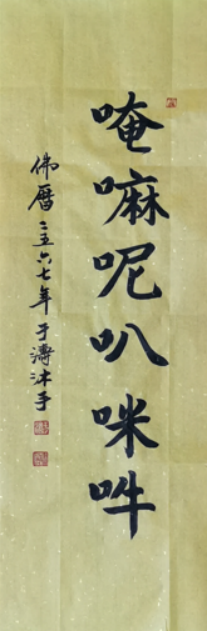 唵嘛呢叭咪吽
佛曆二五六七年于濤沐手